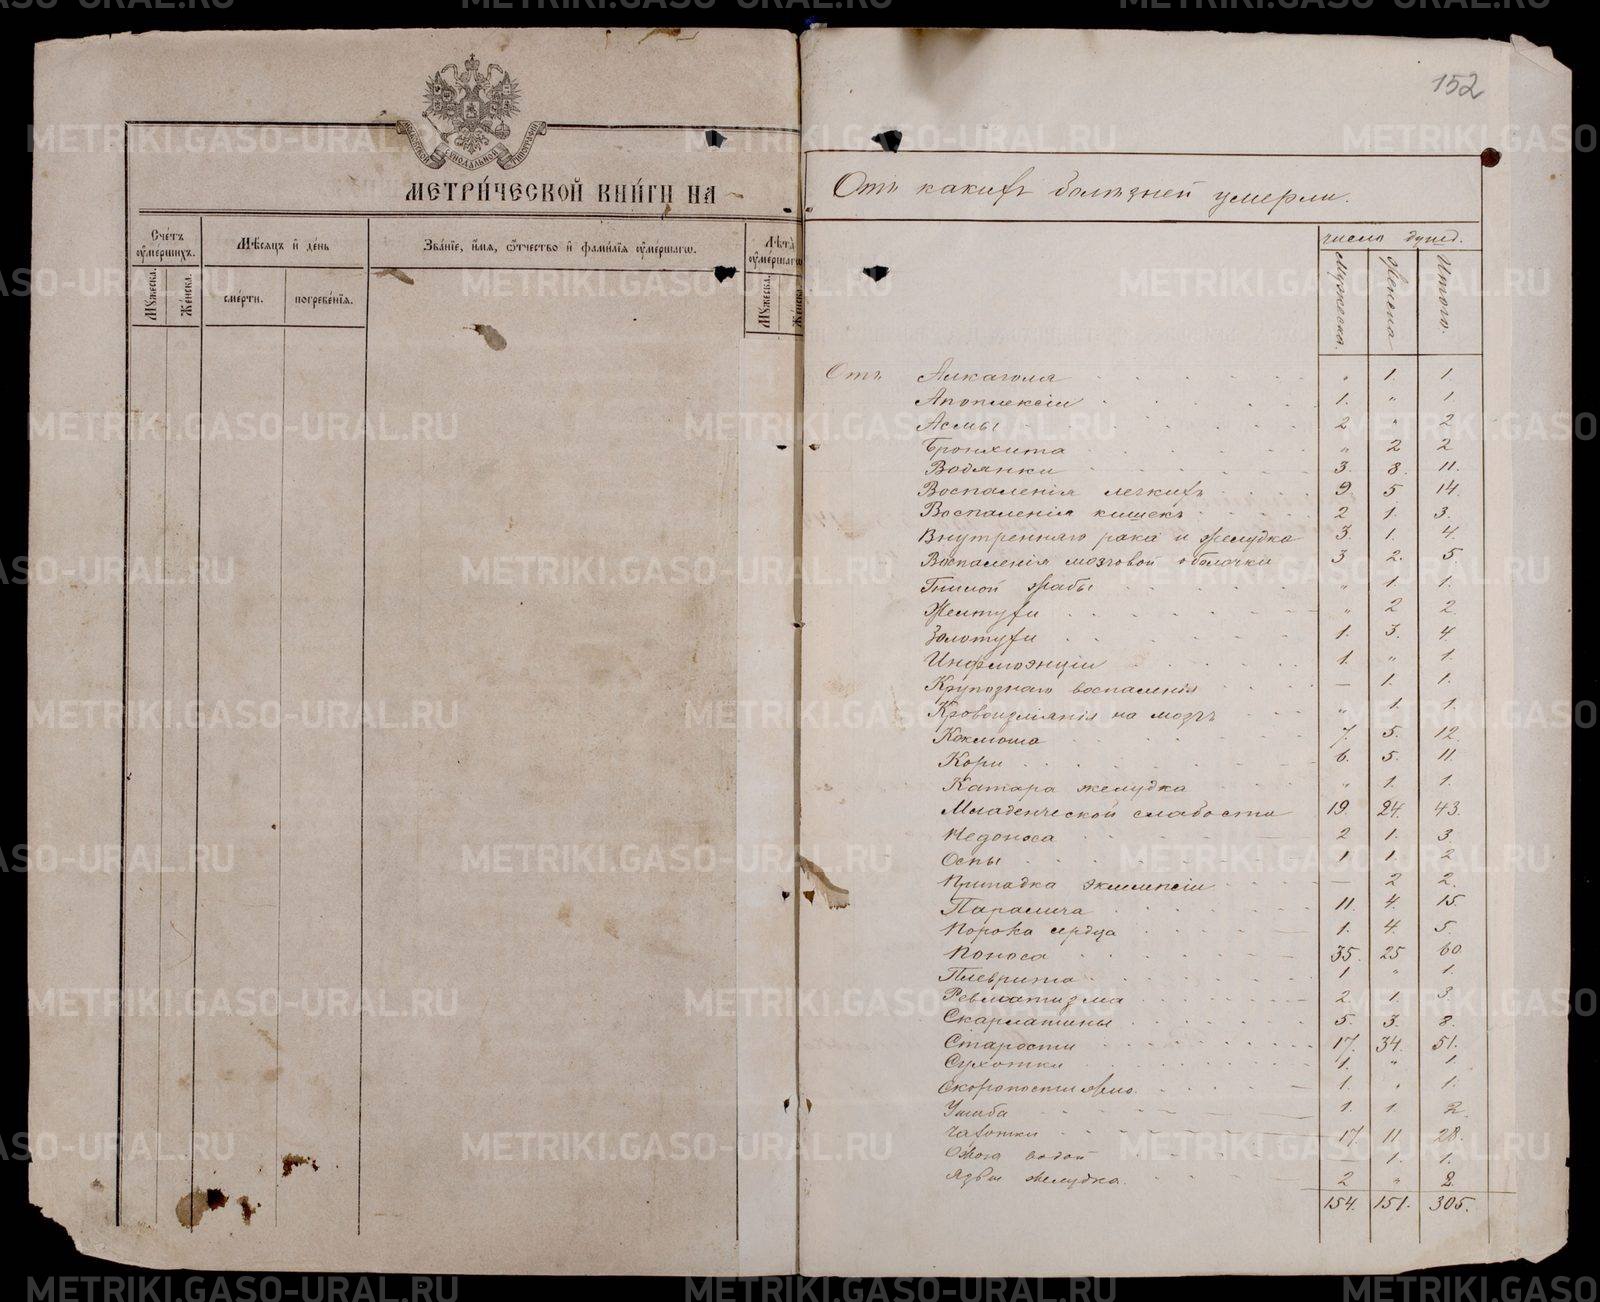 152
МОСКОВСКОЙ СѴНОДАЛЬНОЙ ТИПОГРАФІИ
МЕТРИ́ЧЕСКОЙ КНИ́ГИ НА
Сче́тъ ᲂу҆ме́ршихъ.
Мꙋ́жеска.
Же́нска.
Мѣ́сяцъ и҆ де́нь
сме́рти.
погребе́нїя.
Зва́нїе, и҆́мя, ѻ҆́тчество и҆ фами́лїя ᲂу҆ме́ршагѡ.
Лѣ́та ᲂу҆ме́ршагѡ
Мꙋ́жеска.
Же́нска.
Отъ какихъ болѣзней умерли.
число душъ.
Мужеска.
Женска
Итого.
Отъ Алкаголя „ 1. 1.
Апоплексіи 1. „ 1.
Асмы 2 „ 2
Бронхита „ 2 2
Водянки 3. 8. 11.
Воспаленія легкихъ 9 5 14.
Воспаленія кишекъ 2 1. 3.
Внутренняго рака и желудка 3. 1. 4.
Воспаленія мозговой оболочки 3 2. 5.
Гнилой жабы „ 1. 1.
Желтухи „ 2 2.
Золотухи 1. 3. 4.
Инфлюэнціи 1. „ 1.
Крупознаго воспаленія — 1. 1.
Кровоизліянія на мозгъ „ 1. 1.
Коклюша 7. 5. 12.
Кори 6. 5. 11.
Катара желудка „ 1. 1.
Младенческой слабости 19. 24. 43.
Недоноса 2 1. 3.
Оспы 1 1. 2
Припадка эклампсіи — 2 2.
Паралича 11. 4. 15
Порока сердца 1. 4. 5.
Поноса 35. 25 60
Плеврита 1. „ 1.
Ревматизма 2. 1. 3.
Скарлатины 5. 3. 8.
Старости 17. 34. 51.
Сухотки 1. „ 1.
Скоропостижно 1. „ 1.
Ушиба 1. 1. 2.
Чахотки 17. 11 28.
Ожога водой „ 1. 1.
Язвы желудка. 2 „ 2.
154. 151. 305.
METRIKI.GASO-URAL.RU